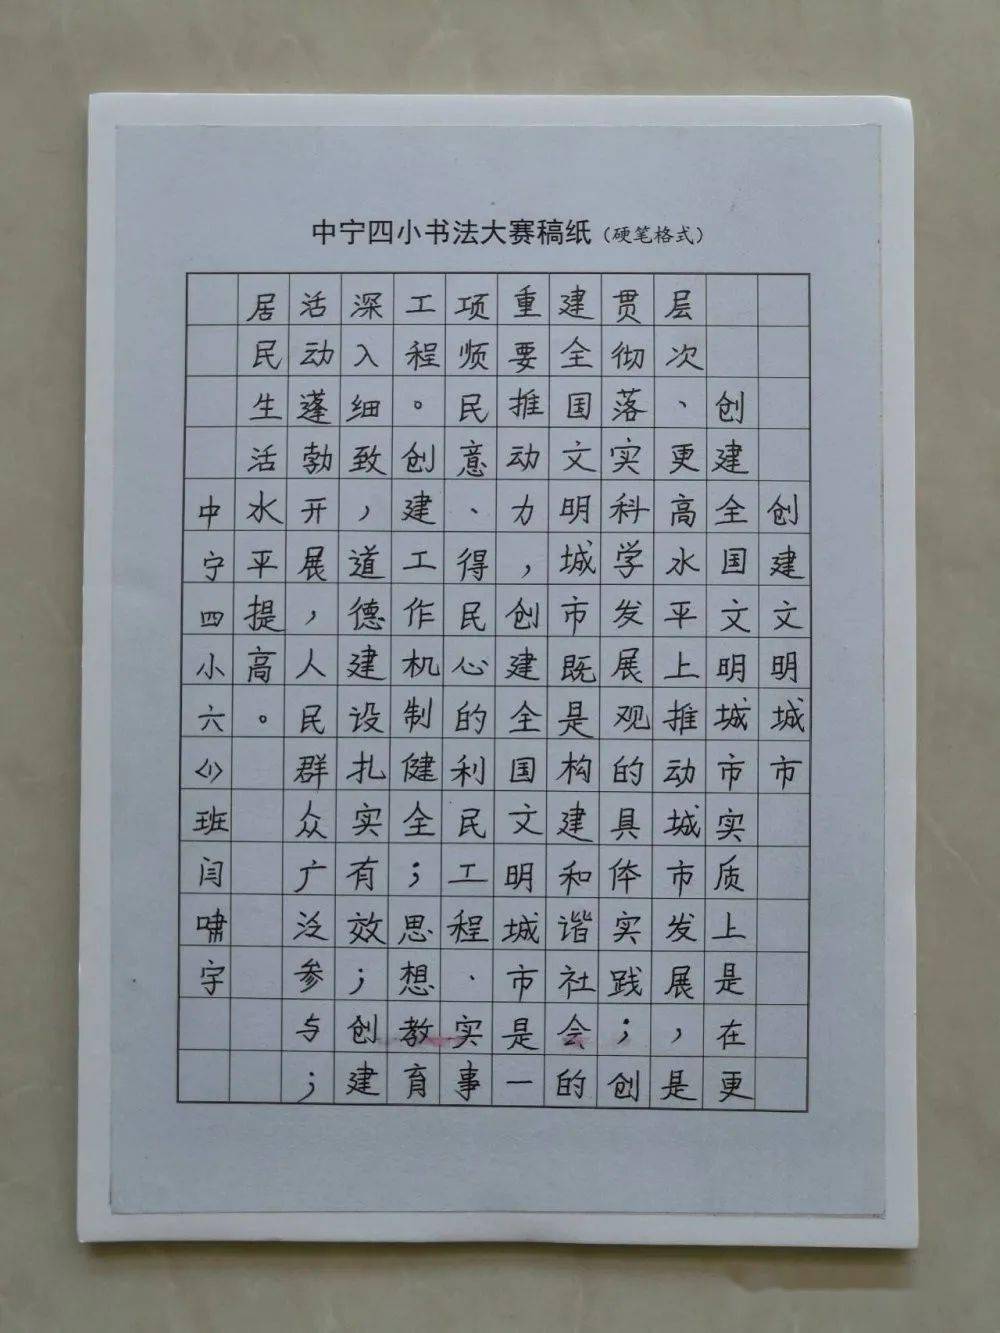 中宁四小书法大赛稿纸(硬笔格式)
创建文明城市
创建全国文明城市实质上是在更
层次、更高水平上推动城市发展,是
贯彻落实科学发展观的具体实践;创
建全国文明城市既是构建和谐社会的
重要推动力,创建全国文明城市是一
项顺民意、得民心的利民工程、实事
工程。创建工作机制健全;思想教育
深入细致,道德建设扎实有效;创建
活动蓬勃开展,人民群众广泛参与;
居民生活水平提高。
中宁四小六(1)班闫啸宇